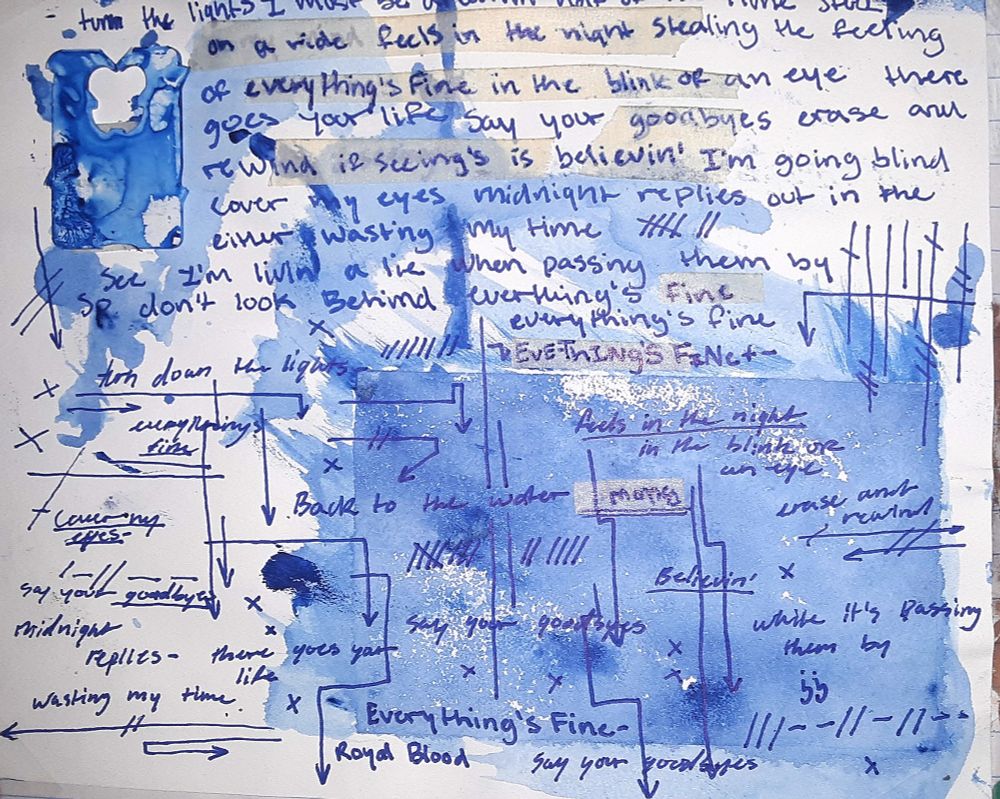 turn the lights I must be
on a ride feels in the night stealing the feeling
of everything's fine in the blink of an eye there
goes your life say your goodbyes erase and
rewind if seeing's is believin' I'm going blind
cover my eyes midnight replies out in the
either wasting my time
See I'm livin a lie when passing them by
So don't look Behind everthing's fine
everything's fine
EVETHING'S FINE
turn down the lights-
everythings
fine
feels in the night
in the blink of
an eye
Back to the water
erase and
rewind
cover my
eyes-
Believin'
say your goodbyes
say your goodbyes
while it's passing
them by
midnight
replies-
there goes your
life
wasting my time
Everything's Fine-
Royal Blood
say your goodbyes